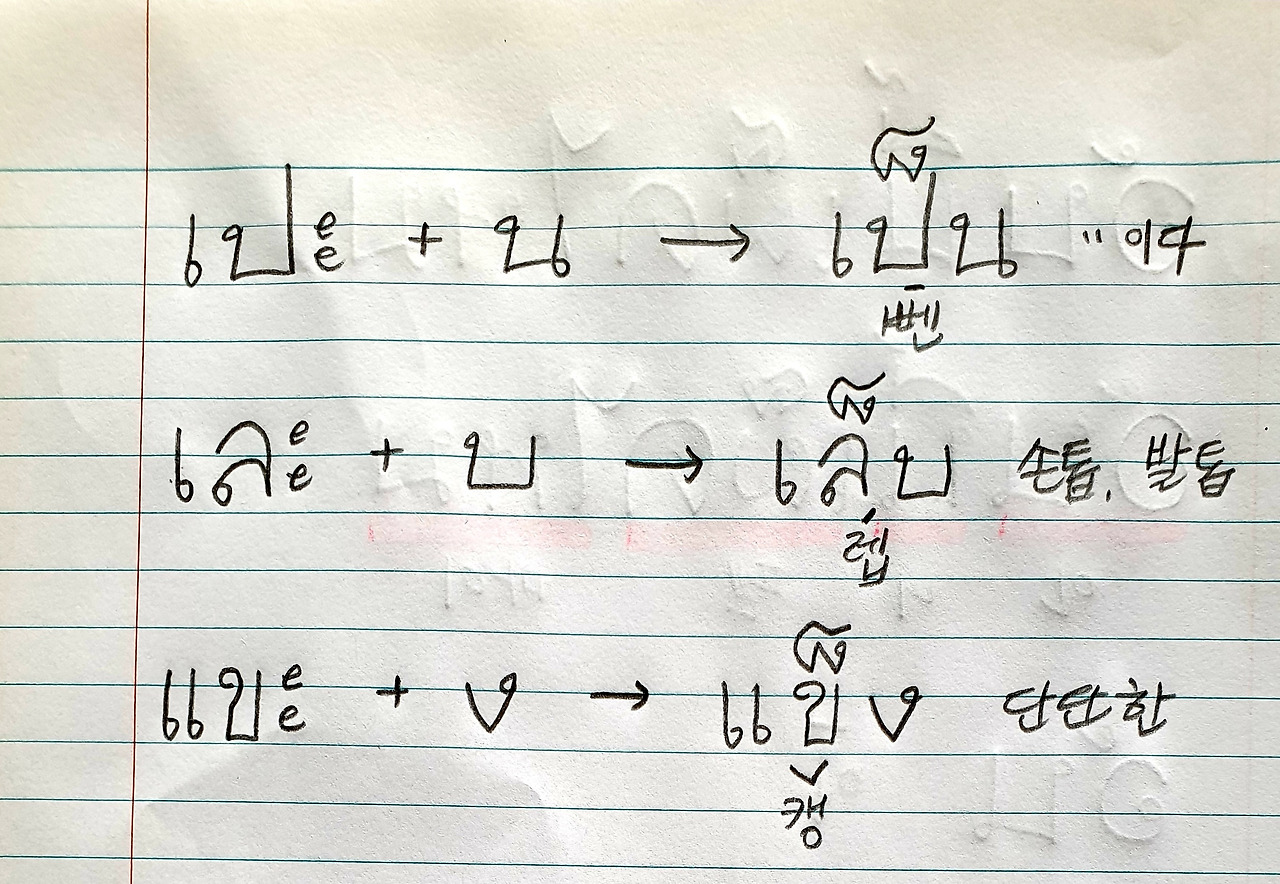 เปะ + น → เป็น " 이다
뻰
เละ + บ → เล็บ 손톱, 발톱
렙
แขะ + ง → แข็ง 단단한
캥